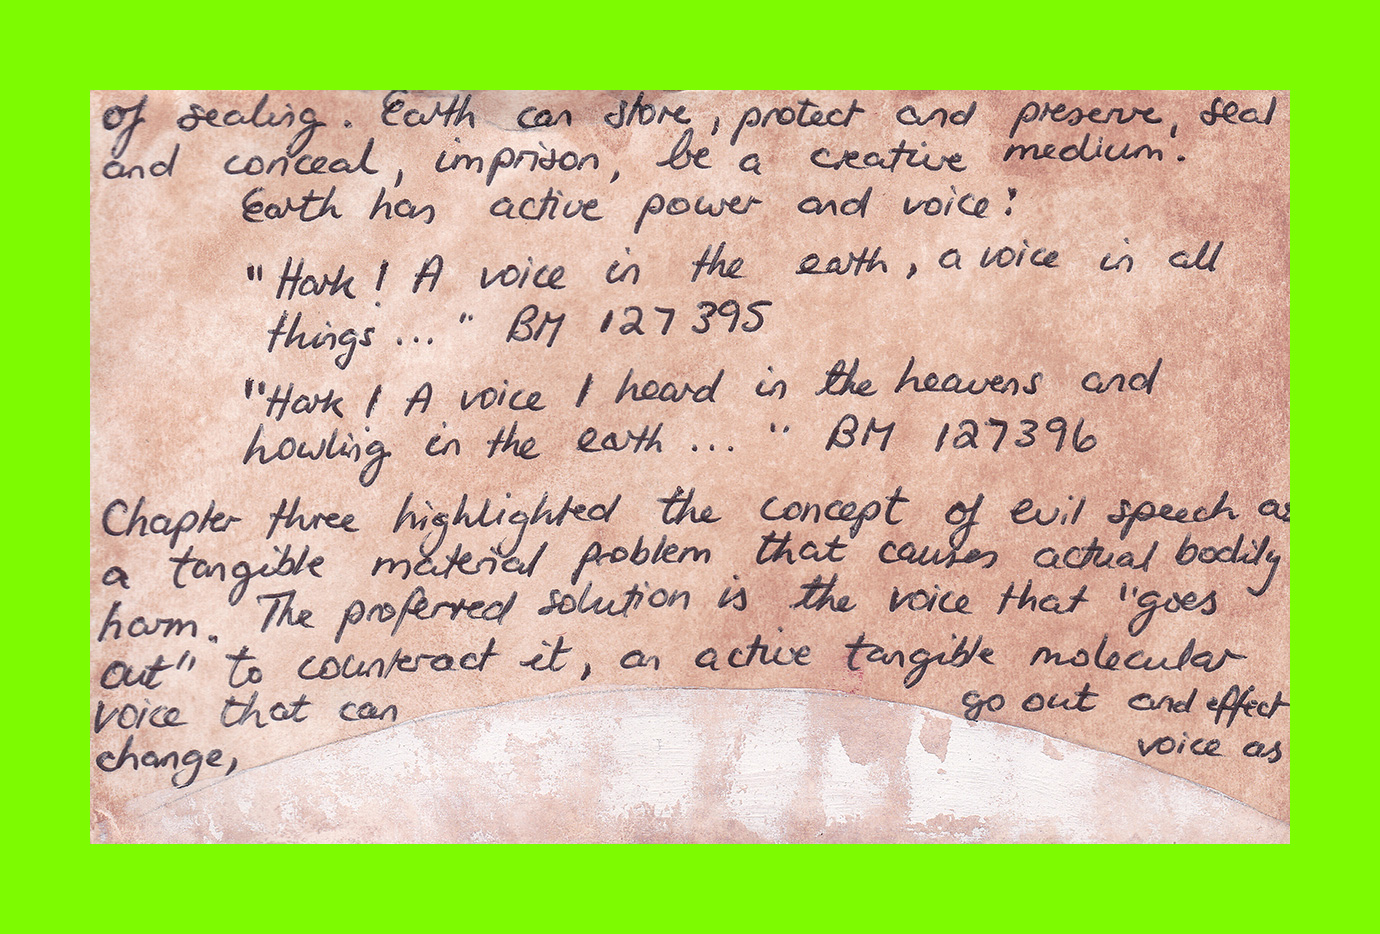 of sealing. Earth can store, protect and preserve, seal
and conceal, imprison, be a creative medium.
Earth has active power and voice:
"Hark! A voice in the earth, a voice in all
things ..." BM 127395
"Hark! A voice I heard in the heavens and
howling in the earth ..." BM 127396
Chapter three highlighted the concept of evil speech as
a tangible material problem that causes actual bodily
harm. The proferred solution is the voice that "goes
out" to counteract it, an active tangible molecular
voice that can go out and effect
change, voice as